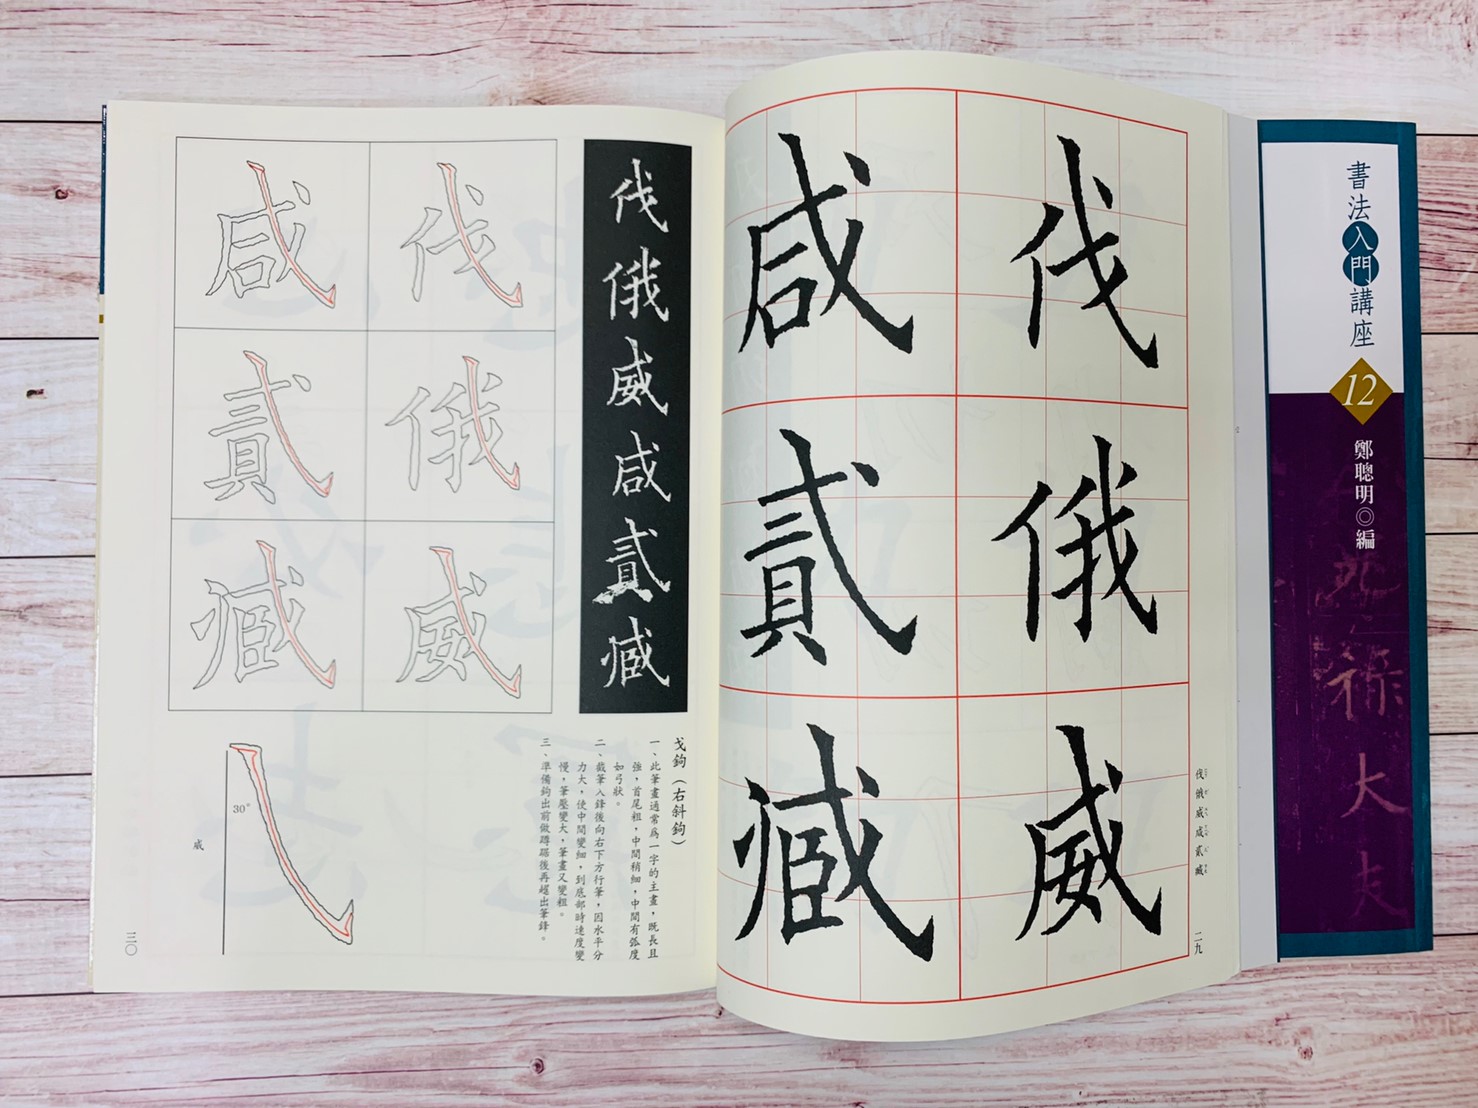 書法入門講座
12
鄭聰明◎編
祿大夫
伐
俄
威
咸
貳
臧
伐俄威咸貳臧
二九
伐
俄
威
咸
貳
臧
伐
俄
威
咸
貳
臧
戈鉤（右斜鉤）
一、此筆畫通常為一字的主畫，既長且
強，首尾粗，中間稍細，中間有弧度
如弓狀。
二、截筆入鋒後向右下方行筆，因水平分
力大，使中間變細，到底部時速度變
慢，筆壓變大，筆畫又變粗。
三、準備鉤出前做蹲踢後再趯出筆鋒。
30°
三〇